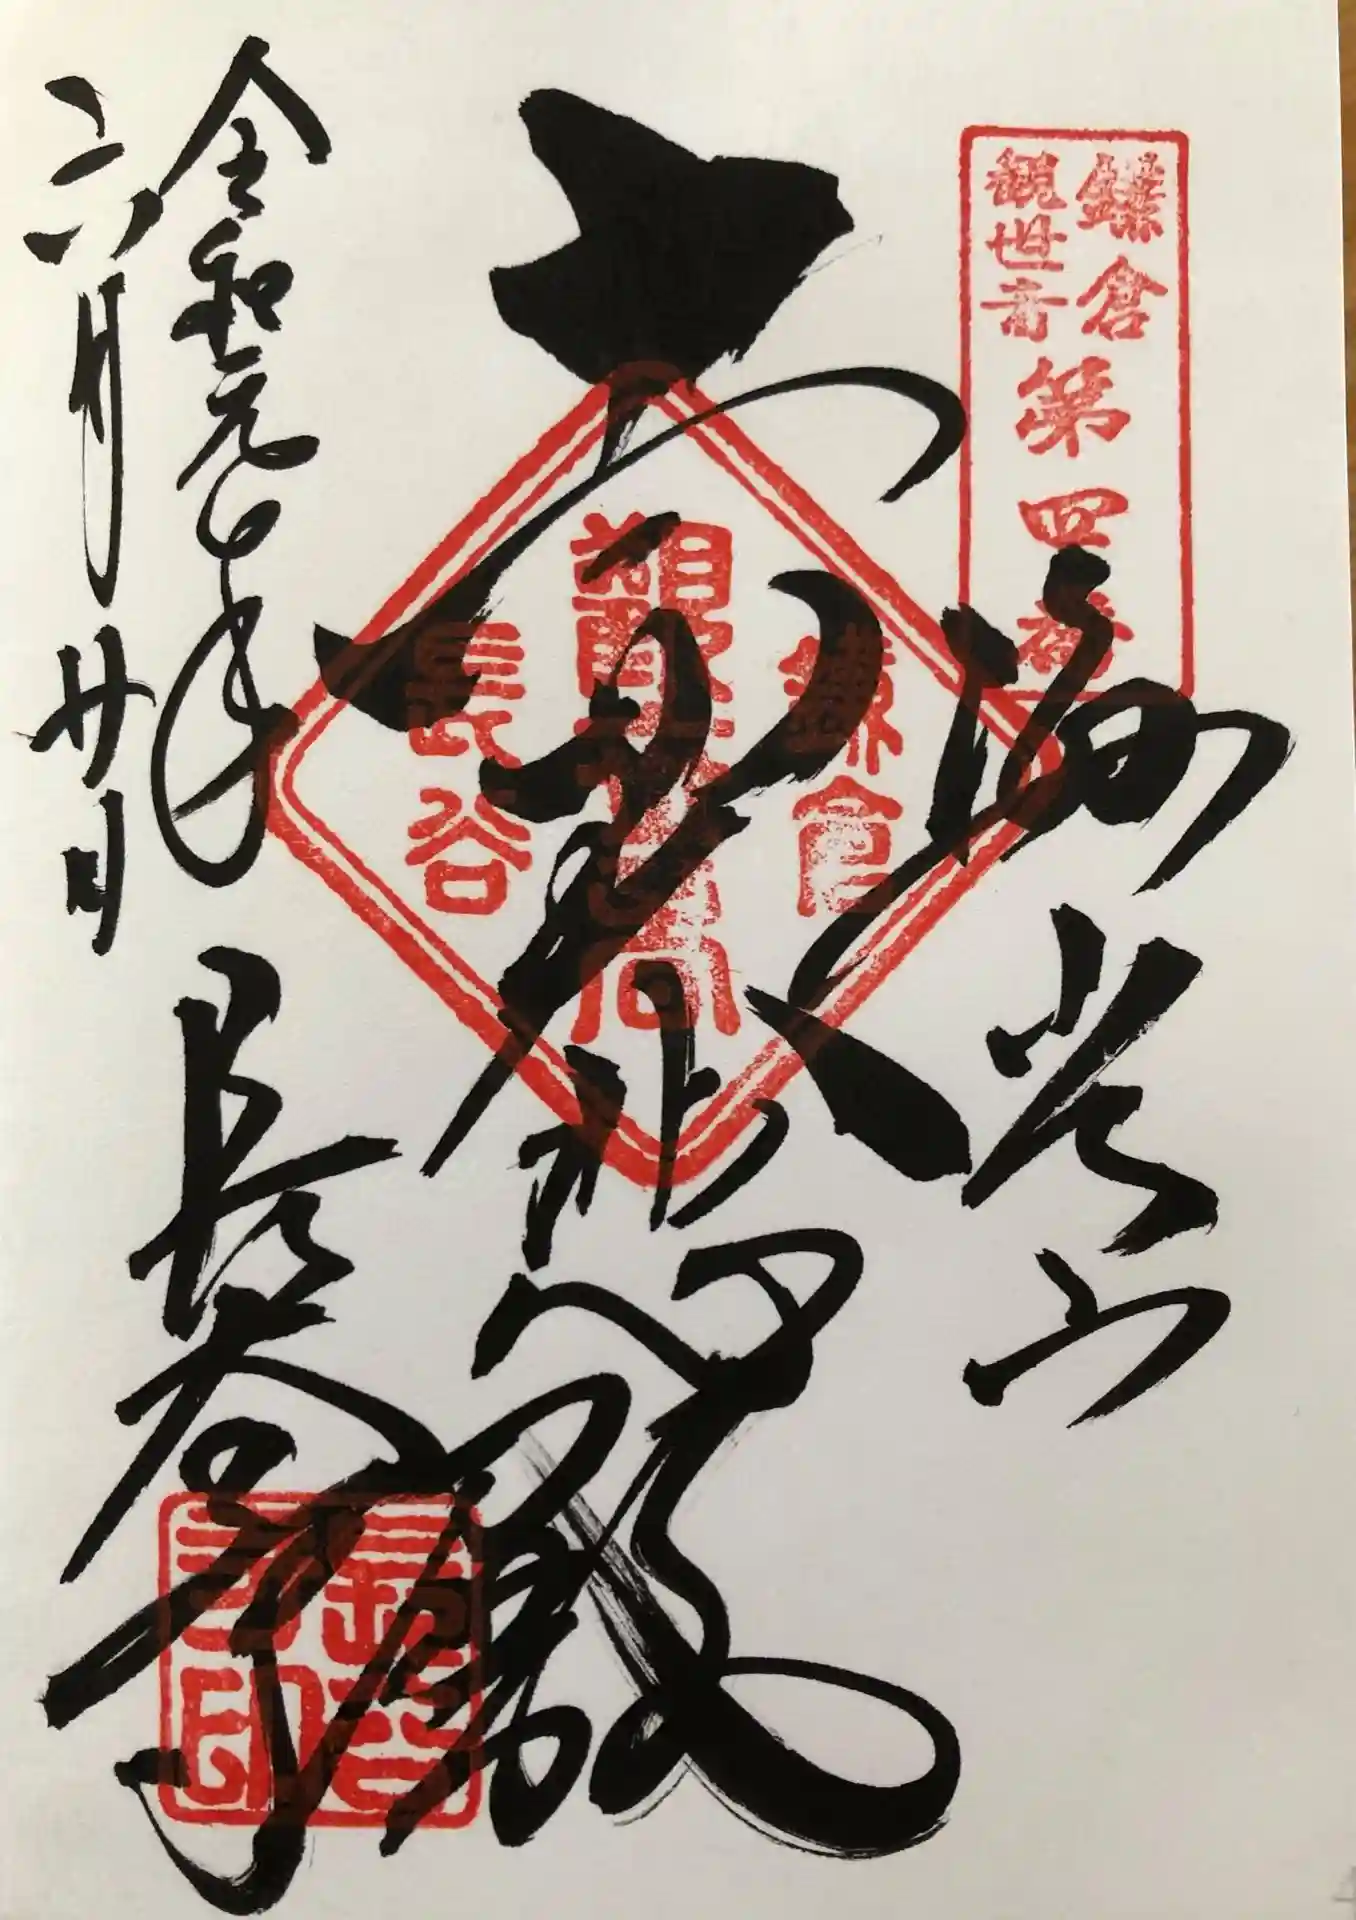 鎌倉
観世音
第四番
海光山
大悲殿
鎌倉
長谷
令和元年
六月廿日
長谷寺
長谷
寺印